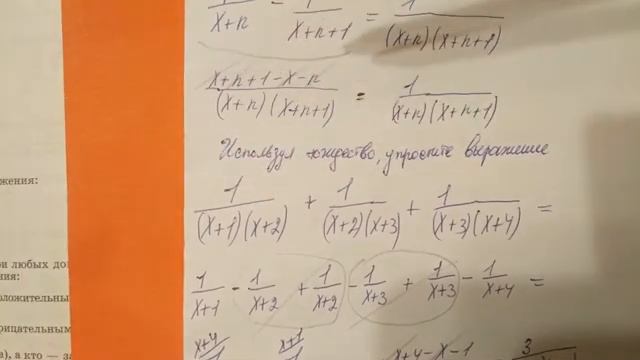 1/(x+n) - 1/(x+n+1) = 1/((x+n)(x+n+1))
(x+n+1-x-n)/((x+n)(x+n+1)) = 1/((x+n)(x+n+1))
Используя тождество, упростите выражение
1/((x+1)(x+2)) + 1/((x+2)(x+3)) + 1/((x+3)(x+4)) =
1/(x+1) - 1/(x+2) + 1/(x+2) - 1/(x+3) + 1/(x+3) - 1/(x+4) =
x+4 x+1 x+4-x-1 3
жения:
ри любых
ния:
оложительны
рицательным
а), а кто — за